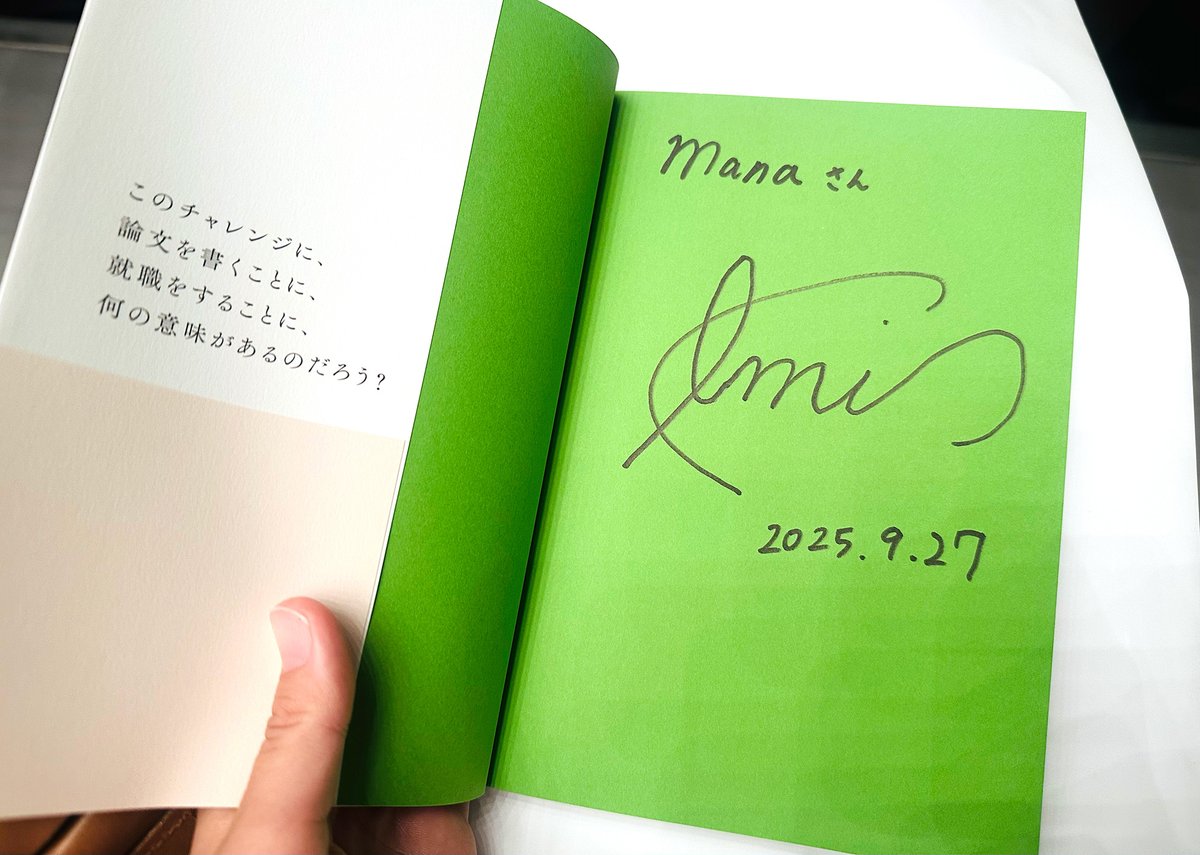 このチャレンジに、
論文を書くことに、
就職をすることに、
何の意味があるのだろう?
Mana さん
Emi
2025.9.27